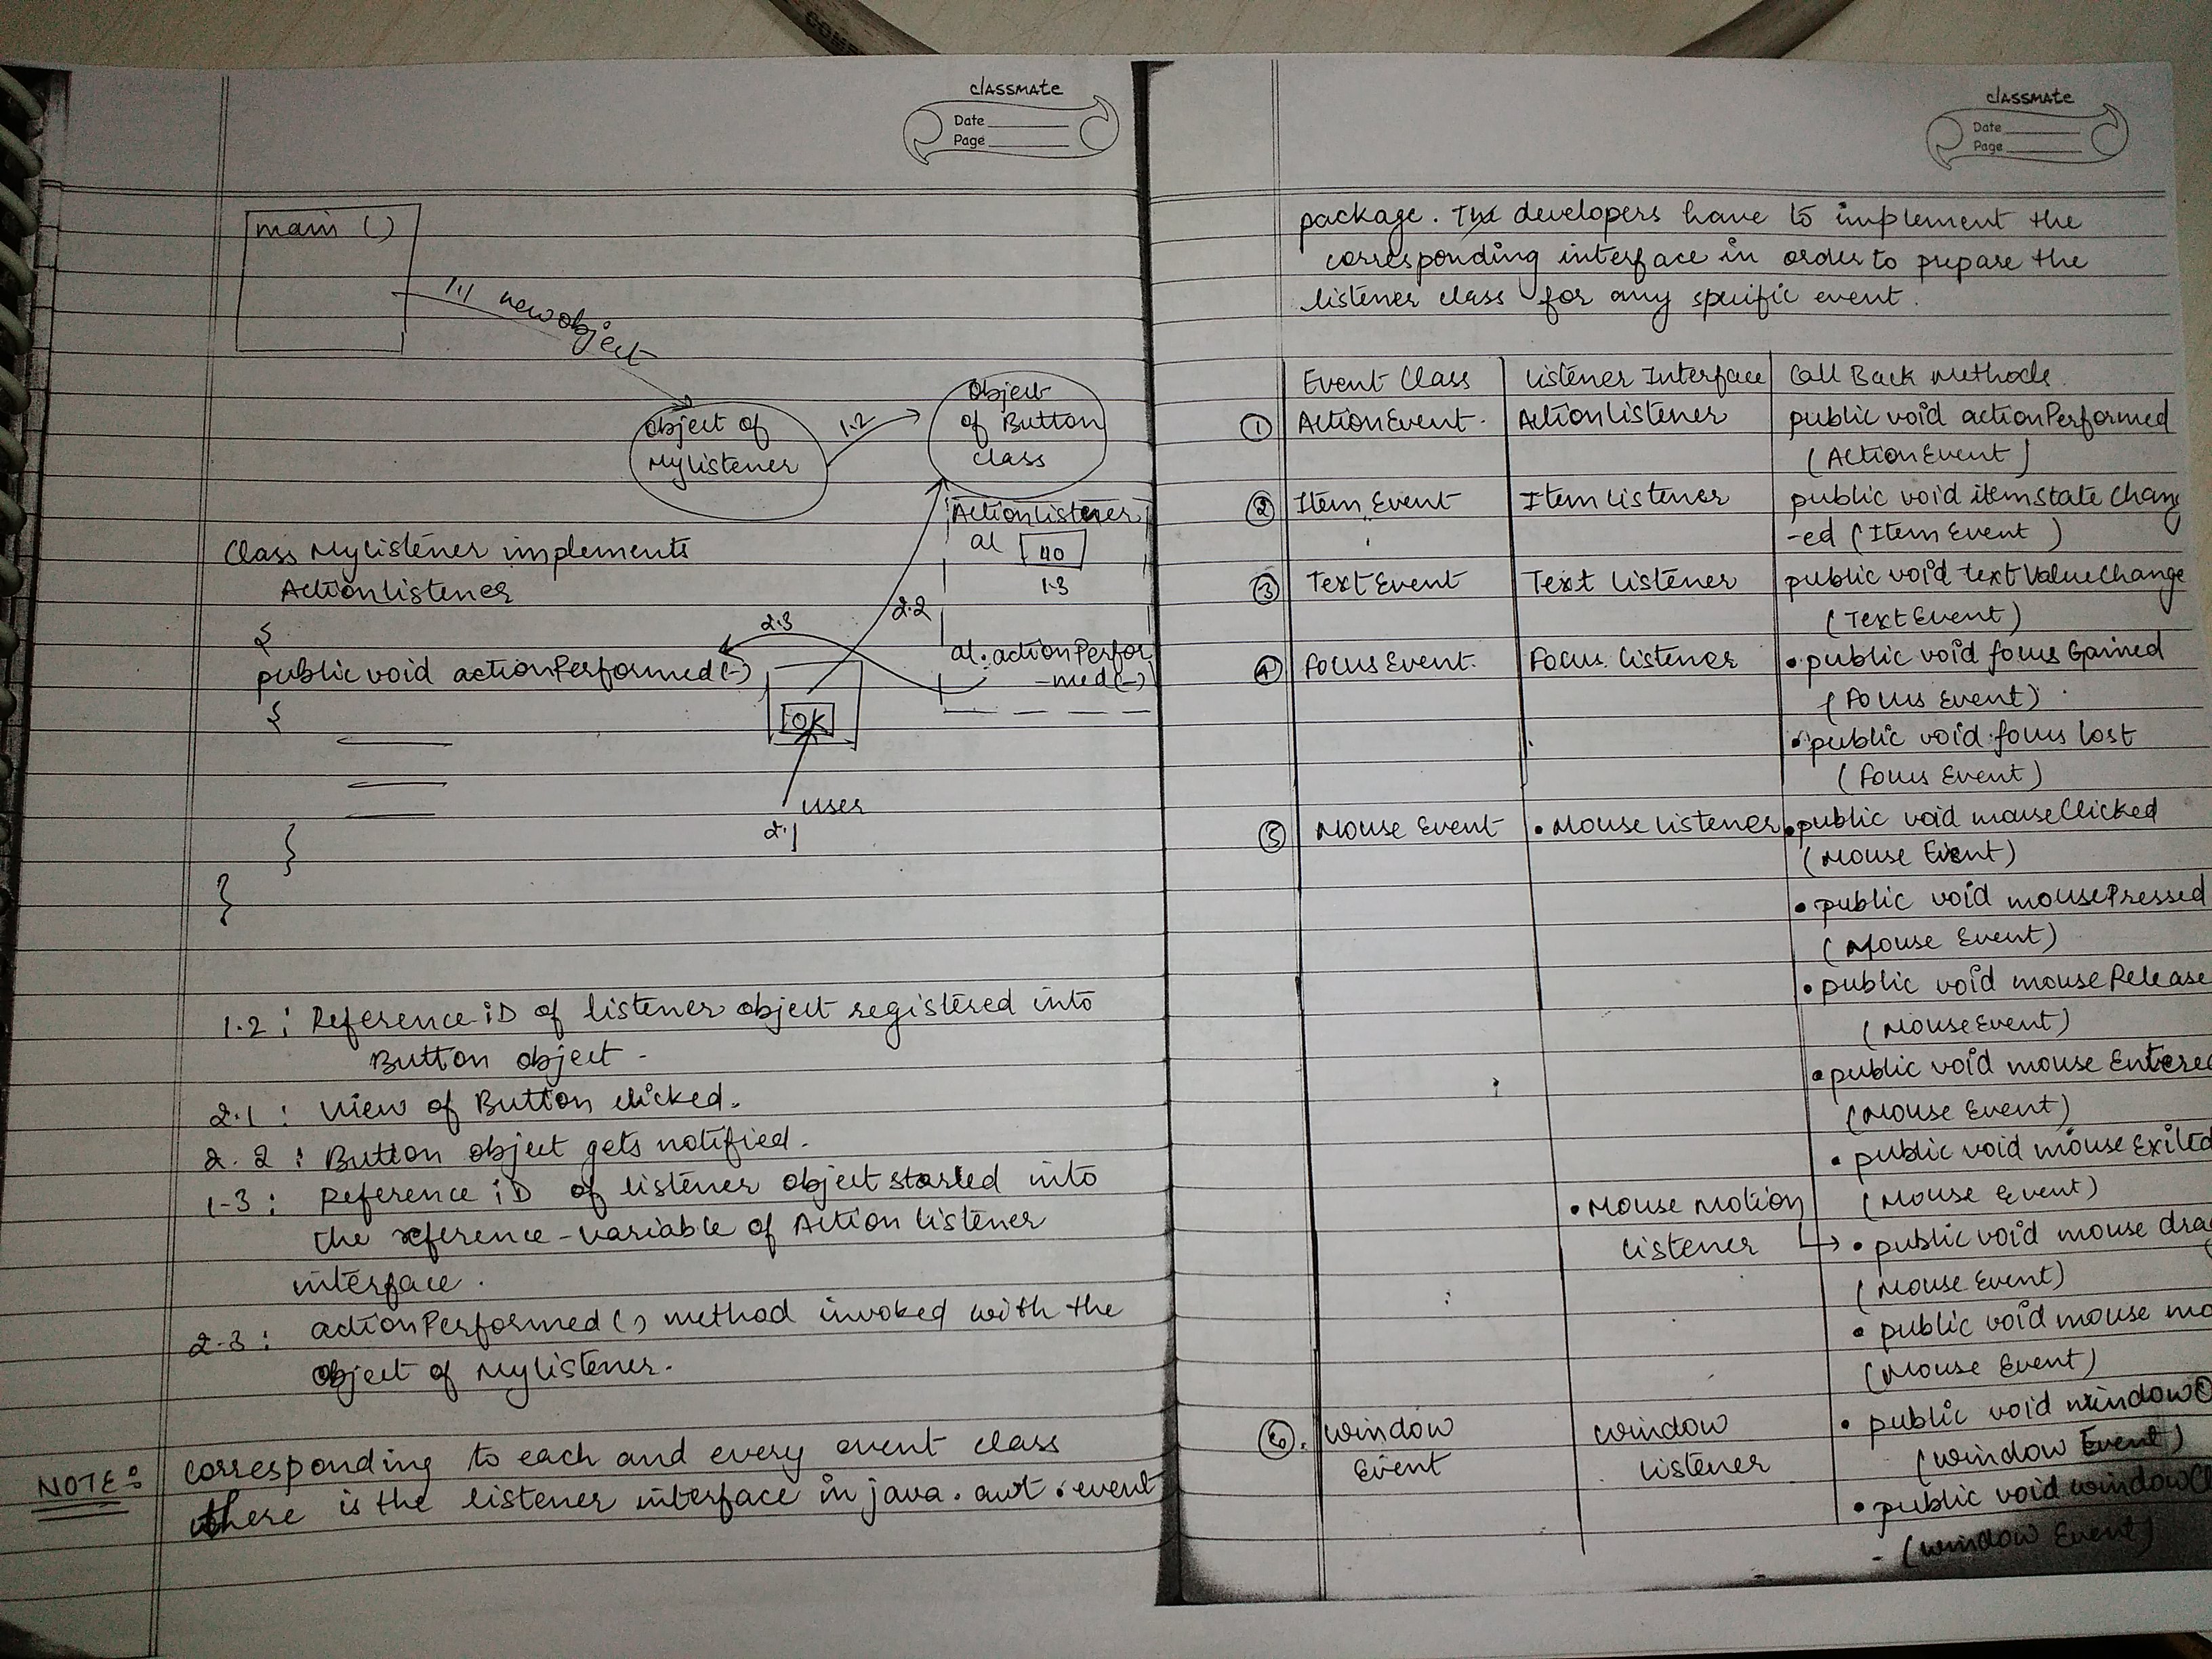 classmate
Date
Page
main ()
1.1 new object
Object of
MyListener
1.2
Object
of Button
class
ActionListener
al 110
1.3
Class MyListener implements
ActionListener
{
public void actionPerformed(-)
{
}
}
2.3
2.2
al.actionPerfor
-med(-)
OK
user
2.1
1.2 : Reference iD of listener object registered into
Button object -
2.1 : View of Button clicked.
2.2 : Button object gets notified.
1-3 : Reference iD of listener object stored into
the reference-variable of Action Listener
interface.
2-3 : actionPerformed() method invoked with the
object of MyListener.
NOTE: Corresponding to each and every event class
there is the listener interface in java.awt.event
classmate
Date
Page
package. The developers have to implement the
corresponding interface in order to prepare the
listener class for any specific event.
Event Class Listener Interface Call Back Methods
① ActionEvent. ActionListener public void actionPerformed
(ActionEvent)
② Item Event Item Listener public void itemState Chang
-ed (Item Event )
③ Text Event Text Listener public void textValueChange
(Text Event)
④ Focus Event. Focus Listener • public void focus Gained
(Focus Event)
• public void focus lost
(Focus Event)
⑤ Mouse Event • Mouse Listener • public void mouseClicked
(Mouse Event)
• public void mousePressed
(Mouse Event)
• public void mouse Release
(Mouse Event)
• public void mouse Entered
(Mouse Event)
• public void mouse Exited
(Mouse Event)
• Mouse Motion
Listener → • public void mouse drag
(Mouse Event)
• public void mouse mo
(Mouse Event)
⑥. Window Window • public void windowO
Event Listener (window Event)
• public void windowCl
- (window Event)